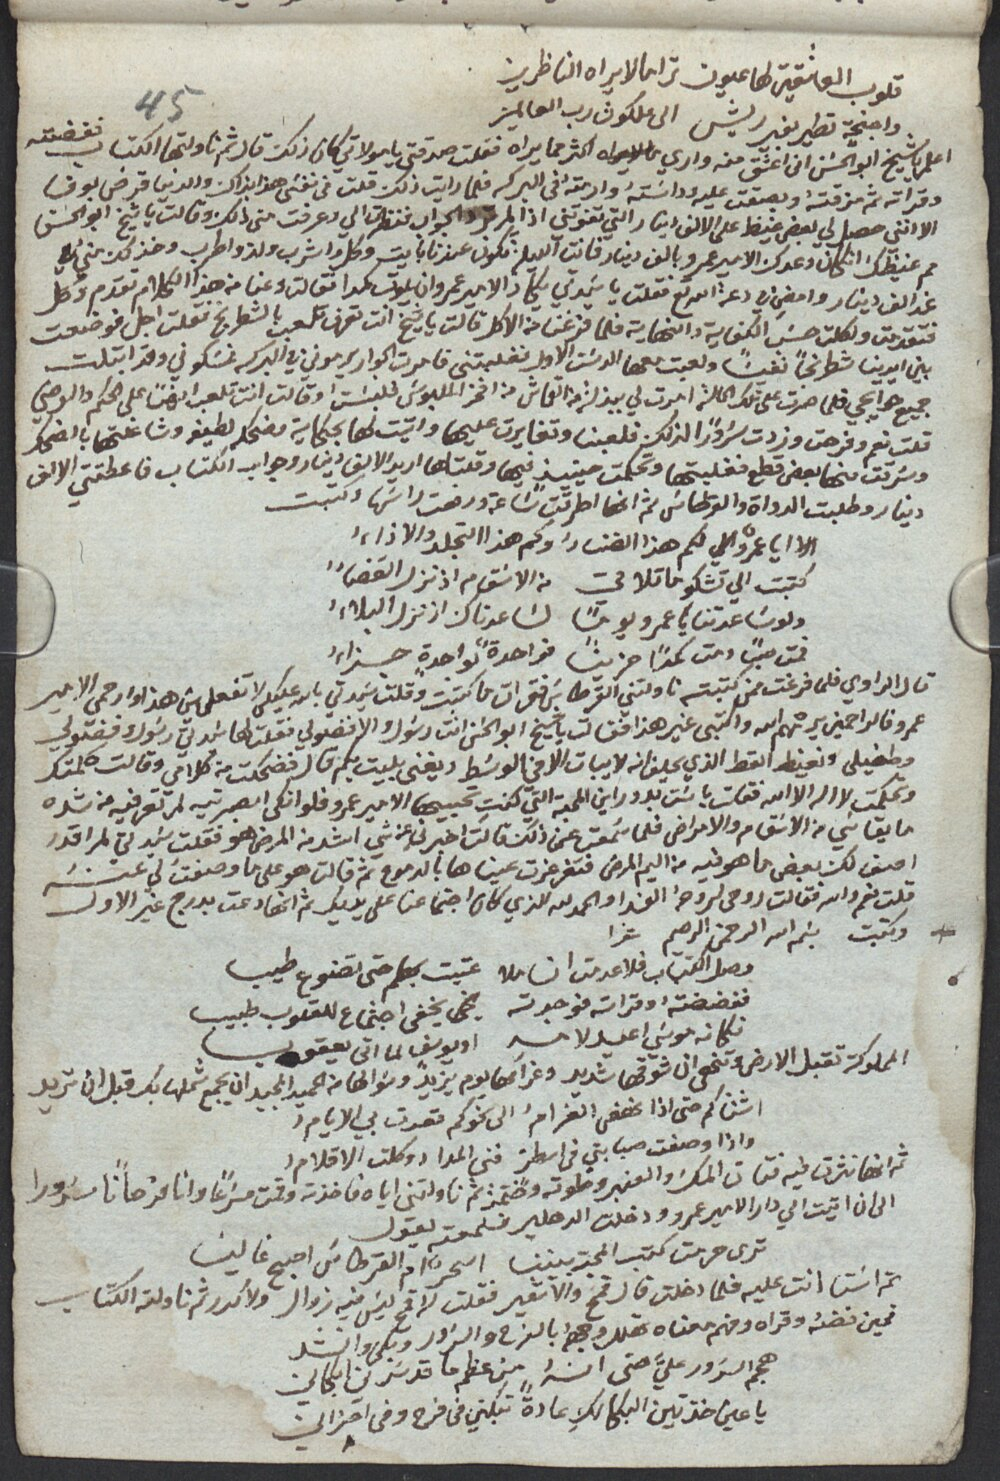 قلوب العاشقين لها عيون ترا ما لا يراه الناظرين
واجنحة تطير بغير ريش الى ملكوت رب العالمين
45
اعلم يا شيخ ابو الحسن اني اعشق منه واري اكثر مما يراه فقلت صدقتي يا مولاتي كان ذلك قال ثم ناولتها الكتاب ففضته
وقراته ثم مزقته وبصقت عليه وداسته وارمته في البركه فلما رايت ذلك قلت في نفسي هذا بذاك والدنيا قرض بوفا
الا انني حصل لي بعض غيظ على الالف دينار التي تفوتني اذا لم ارد الجواب فنظرت الي وعرفت مني ذلك وقالت يا شيخ ابو الحسن
مم غيظك ان كان وعدك الامير عمرو بالف دينار فانت الليلة تكون عندنا بايت وكل واشرب ولذ واطرب وخذ لك مني
غد الف دينار وامضي في دعة الله تع فقلت يا ستي يكاد الامير عمرو ان يموت كمدا فقالت دعنا من هذا الكلام تقدم وكل
فتقدمت واكلت حسب الكفاية والنهاية فلما فرغنا من الاكل قالت يا شيخ انت تعرف تلعب بالشطرنج فقلت اجل فوضعت
بين ايدينا شطرنجا نفيسا ولعبت معها الدست الاول فغلبتني فامرت الجوار يرموني في البركه فمسكوني وقد ابتلت
جميع حوايجي فلما صرت على تلك الحالة امرت لي ببدلة من القماش من افخر الملبوس فلبستها وقالت انت تلعب ايضا على الحكم والرضي
قلت نعم وفرحت وزدت سرورا لذلك فلعبنا وتغايرت عليها واتيت لها بحكاية مضحكه لطيفه وشاغلتها بالضحك
وسرقت منها بعض قطع فغلبتها وتحكمت حينيذ فيها وقلت لها اريد الالف دينار وجواب الكتاب فاعطتني الالف
دينار وطلبت الدواة والقرطاس ثم انها اطرقت ساعة ورفعت راسها وكتبت
الا ايا عمرو الى كم هذا العناء وكم هذا التجلد والاذاء
كتبت الي تشكو ما تلاقي من الاسقام اذ نزل القضاء
ولو ساعدتنا يا عمرو يوما لساعدناك اذ نزل البلاء
فمت صبا ومت كمدا حزينا فواحدة بواحدة جزاء
قال الراوي فلما فرغت من كتبته ناولتني القرطاس فقرات ما كتبت وقلت ستي بالله عليكي لا تفعلي مثل هذا وارحمي الامير
عمرو فالراحمين يرحمهم الله واكتبي غير هذا فقالت يا شيخ ابو الحسن انت رسول والا فضولي فقلت لها ستي رسول وفضولي
وطفيلي ونغيظ القط الذي يحلف انه لا يبات الا في الوسط ويغني بيت بكم قال فضحكت من كلامي وقالت كلمتك
وتحكمت لا اله الا الله فقلت يا ست بدور اين المحبة التي كنت تحبيها الامير عمرو فلو انكي ابصرتيه لم تعرفيه من شدة
ما يقاسي من الاسقام والامراض فلما سمعت عن ذلك قالت اخبرني عن شي اشد من المرض هو فقلت ستي لم اقدر
اصف لك بعض ما هو فيه من اليم المرض فتغرغرت عيناها بالدموع ثم قالت هو على ما وصفت لي عنه
قلت نعم والله فقالت روحي لروحه الفدا والحمد لله الذي كان اجتماعنا على يديك ثم انها دعت بدرج غير الاول
وكتبت بسم الله الرحمن الرحيم
وصل الكتاب فلا عدمت اناملا عنيت به حتى تضوع طيب
ففضضته وقراته فوجدته يخفي اجتماع للقلوب طبيب
فكانه موسى اعيد لامه او يوسف لما اتى يعقوب
المملوكة تقبل الارض وتنهي ان شوقها شديد وغرامها يوم يزيد وسوالها من الحميد المجيد ان يجمع شملها بك قبل ان تريد
اشتاكم حتى اذا نهض الغرام الى نحوكم قعدت بي الايام
واذا وصفت صبابتي في اسطر فني المداد وكلت الاقلام
ثم انها نثرت فيه فتات المسك والعنبر وطوته وختمته ثم ناولتني اياه فاخذته وقمت مسرعا وانا فرحانا مسرورا
الى ان اتيت الى دار الامير عمرو ودخلت الدهليز فسمعته يقول
ترى حرمت كتب المحبة بيننا اسحر ام القرطاس اصبح غاليا
ثم استاذنت عليه فلما دخلت قال قمح والا شعير فقلت له قمح ليس فيه زوال ولا كدر ثم ناولته الكتاب
فحين فضه وقراه وفهم معناه تهلل وجهه بالفرح والسرور وبكى وانشد
هجم السرور علي حتى انه من عظم ما قد سرني ابكاني
يا عين خذتين البكا لك عادة تبكين في فرح وفي احزاني